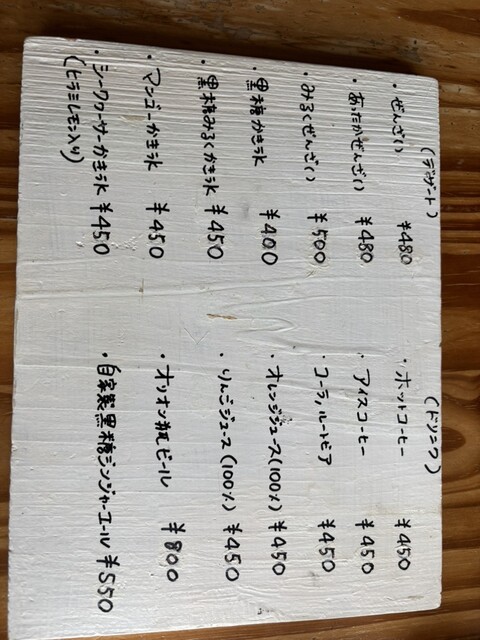 (デザート)
・ぜんざい ¥480
・あったかぜんざい ¥480
・みるくぜんざい ¥500
・黒糖かき氷 ¥400
・黒糖みるくかき氷 ¥450
・マンゴーかき氷 ¥450
・シークワーサーかき氷 ¥450
(ヒラミレモン入り)
(ドリンク)
・ホットコーヒー ¥450
・アイスコーヒー ¥450
・コーラ,ルートビア ¥450
・オレンジジュース(100%) ¥450
・りんごジュース(100%) ¥450
・オリオン瓶ビール ¥800
・自家製黒糖ジンジャーエール ¥550